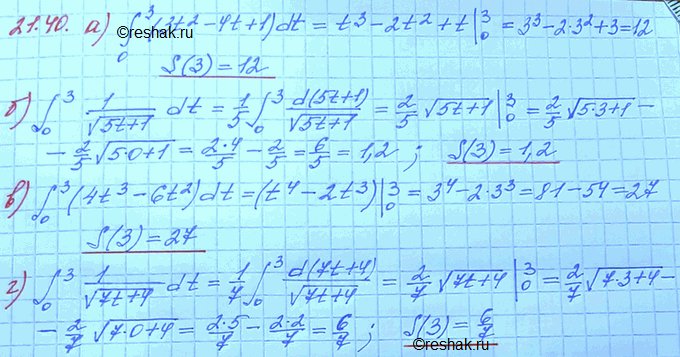 21.40. а) ∫₀³ (3t² − 4t + 1) dt = t³ − 2t² + t |₀³ = 3³ − 2·3² + 3 = 12
S(3) = 12
б) ∫₀³ 1/√(5t+1) dt = 1/5 ∫₀³ d(5t+1)/√(5t+1) = 2/5 √(5t+1) |₀³ = 2/5 √(5·3+1) −
− 2/5 √(5·0+1) = 2·4/5 − 2/5 = 6/5 = 1,2 ; S(3) = 1,2
в) ∫₀³ (4t³ − 6t²) dt = (t⁴ − 2t³) |₀³ = 3⁴ − 2·3³ = 81 − 54 = 27
S(3) = 27
г) ∫₀³ 1/√(7t+4) dt = 1/7 ∫₀³ d(7t+4)/√(7t+4) = 2/7 √(7t+4) |₀³ = 2/7 √(7·3+4) −
− 2/7 √(7·0+4) = 2·5/7 − 2·2/7 = 6/7 ; S(3) = 6/7
©reshak.ru